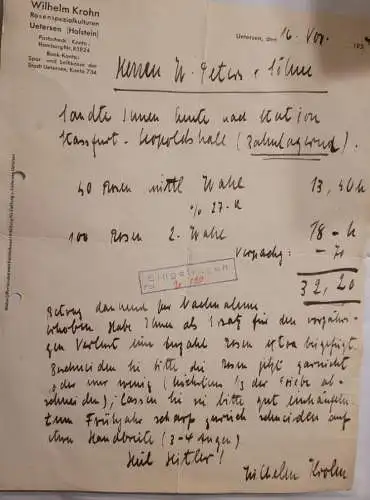 Wilhelm Krohn
Rosenspezialkulturen
Uetersen (Holstein)
Postscheck-Konto:
Hamburg Nr. 81824
Bank-Konto:
Spar- und Leihkasse der
Stadt Uetersen, Konto 734
Uetersen, den 16. Nov. 193
Herren W. Peters & Söhne
Sandte Ihnen heute nach Station
Stassfurt-Leopoldshall (bahnlagernd).
40 Rosen mittl Wahl 13,50
% 27.-
100 Rosen 2. Wahl 18-
Verpackg: -70
32,20
Eingegangen
Betrag dankend per Nachnahme
erhoben. Habe Ihnen als Ersatz für den vorjähri-
gen Verlust eine Anzahl Rosen extra beigefügt.
Beschneiden Sie bitte die Rosen jetzt garnicht
oder nur wenig (höchstens 1/3 der Triebe ab-
schneiden), lassen Sie sie bitte gut einhäufeln.
Zum Frühjahr scharf zurück schneiden auf
etwa Handbreite (3-4 Augen)
Heil Hitler!
Wilhelm Krohn